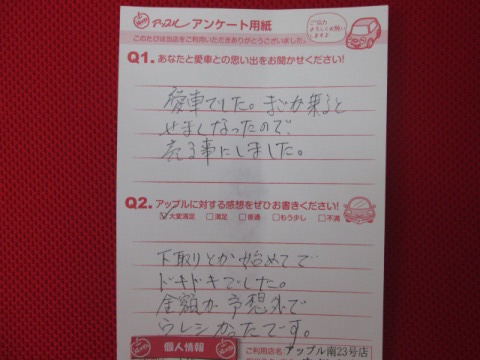 アップル アンケート用紙
ご協力
よろしくお願い
します♪
このたびは当店をご利用いただきありがとうございました。
Q1. あなたと愛車との思い出をお聞かせください!
愛車でした。まごが乗ると
せまくなったので、
売る事にしました。
Q2. アップルに対する感想をぜひお書きください!
☑大変満足 □満足 □普通 □もう少し □不満
下取りとか始めてで
ドキドキでした。
金額が予想外で
ウレシかったです。
個人情報
ご利用店名 アップル南23号店